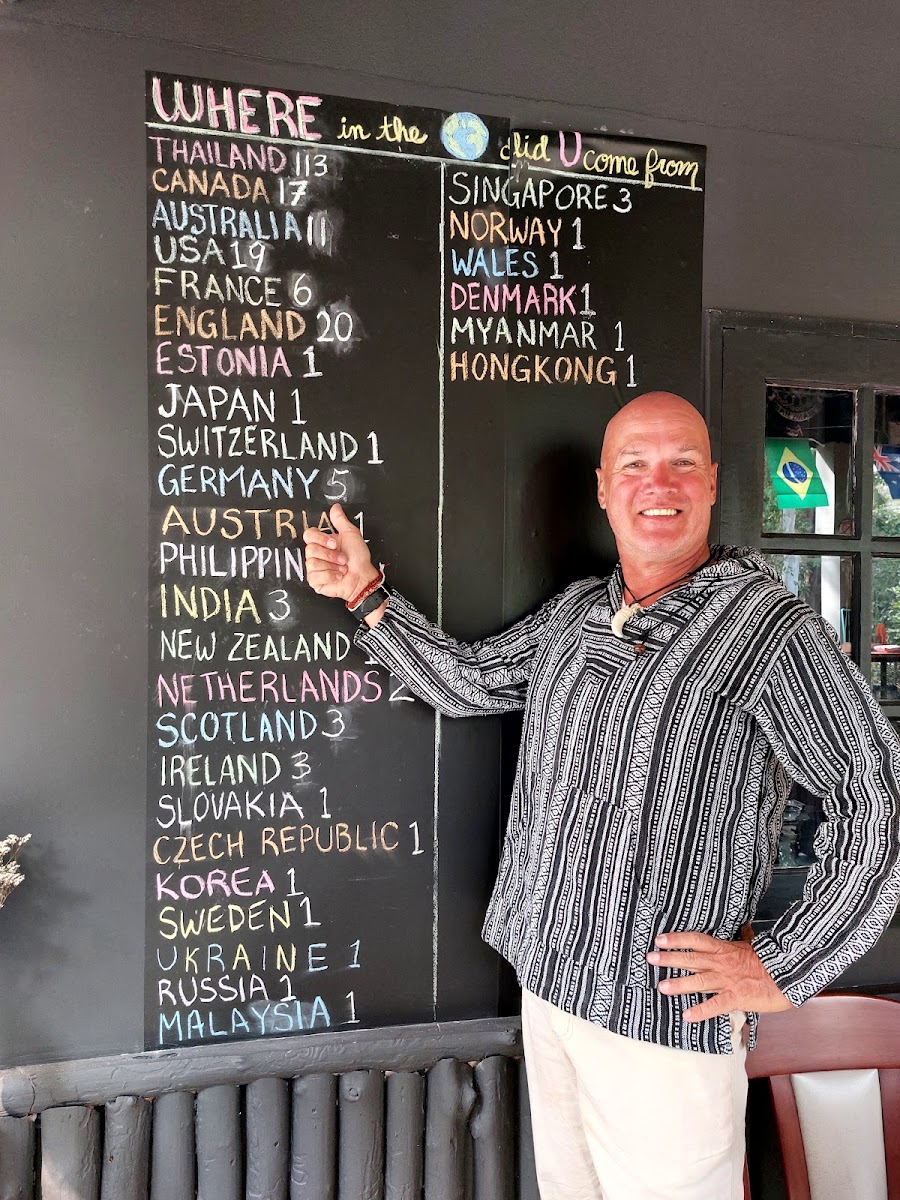 WHERE in the did U come from
THAILAND 113
CANADA 17
AUSTRALIA 11
USA 19
FRANCE 6
ENGLAND 20
ESTONIA 1
JAPAN 1
SWITZERLAND 1
GERMANY 5
AUSTRIA 1
PHILIPPIN
INDIA 3
NEW ZEALAND 1
NETHERLANDS 2
SCOTLAND 3
IRELAND 3
SLOVAKIA 1
CZECH REPUBLIC 1
KOREA 1
SWEDEN 1
UKRAINE 1
RUSSIA 1
MALAYSIA 1
SINGAPORE 3
NORWAY 1
WALES 1
DENMARK 1
MYANMAR 1
HONGKONG 1